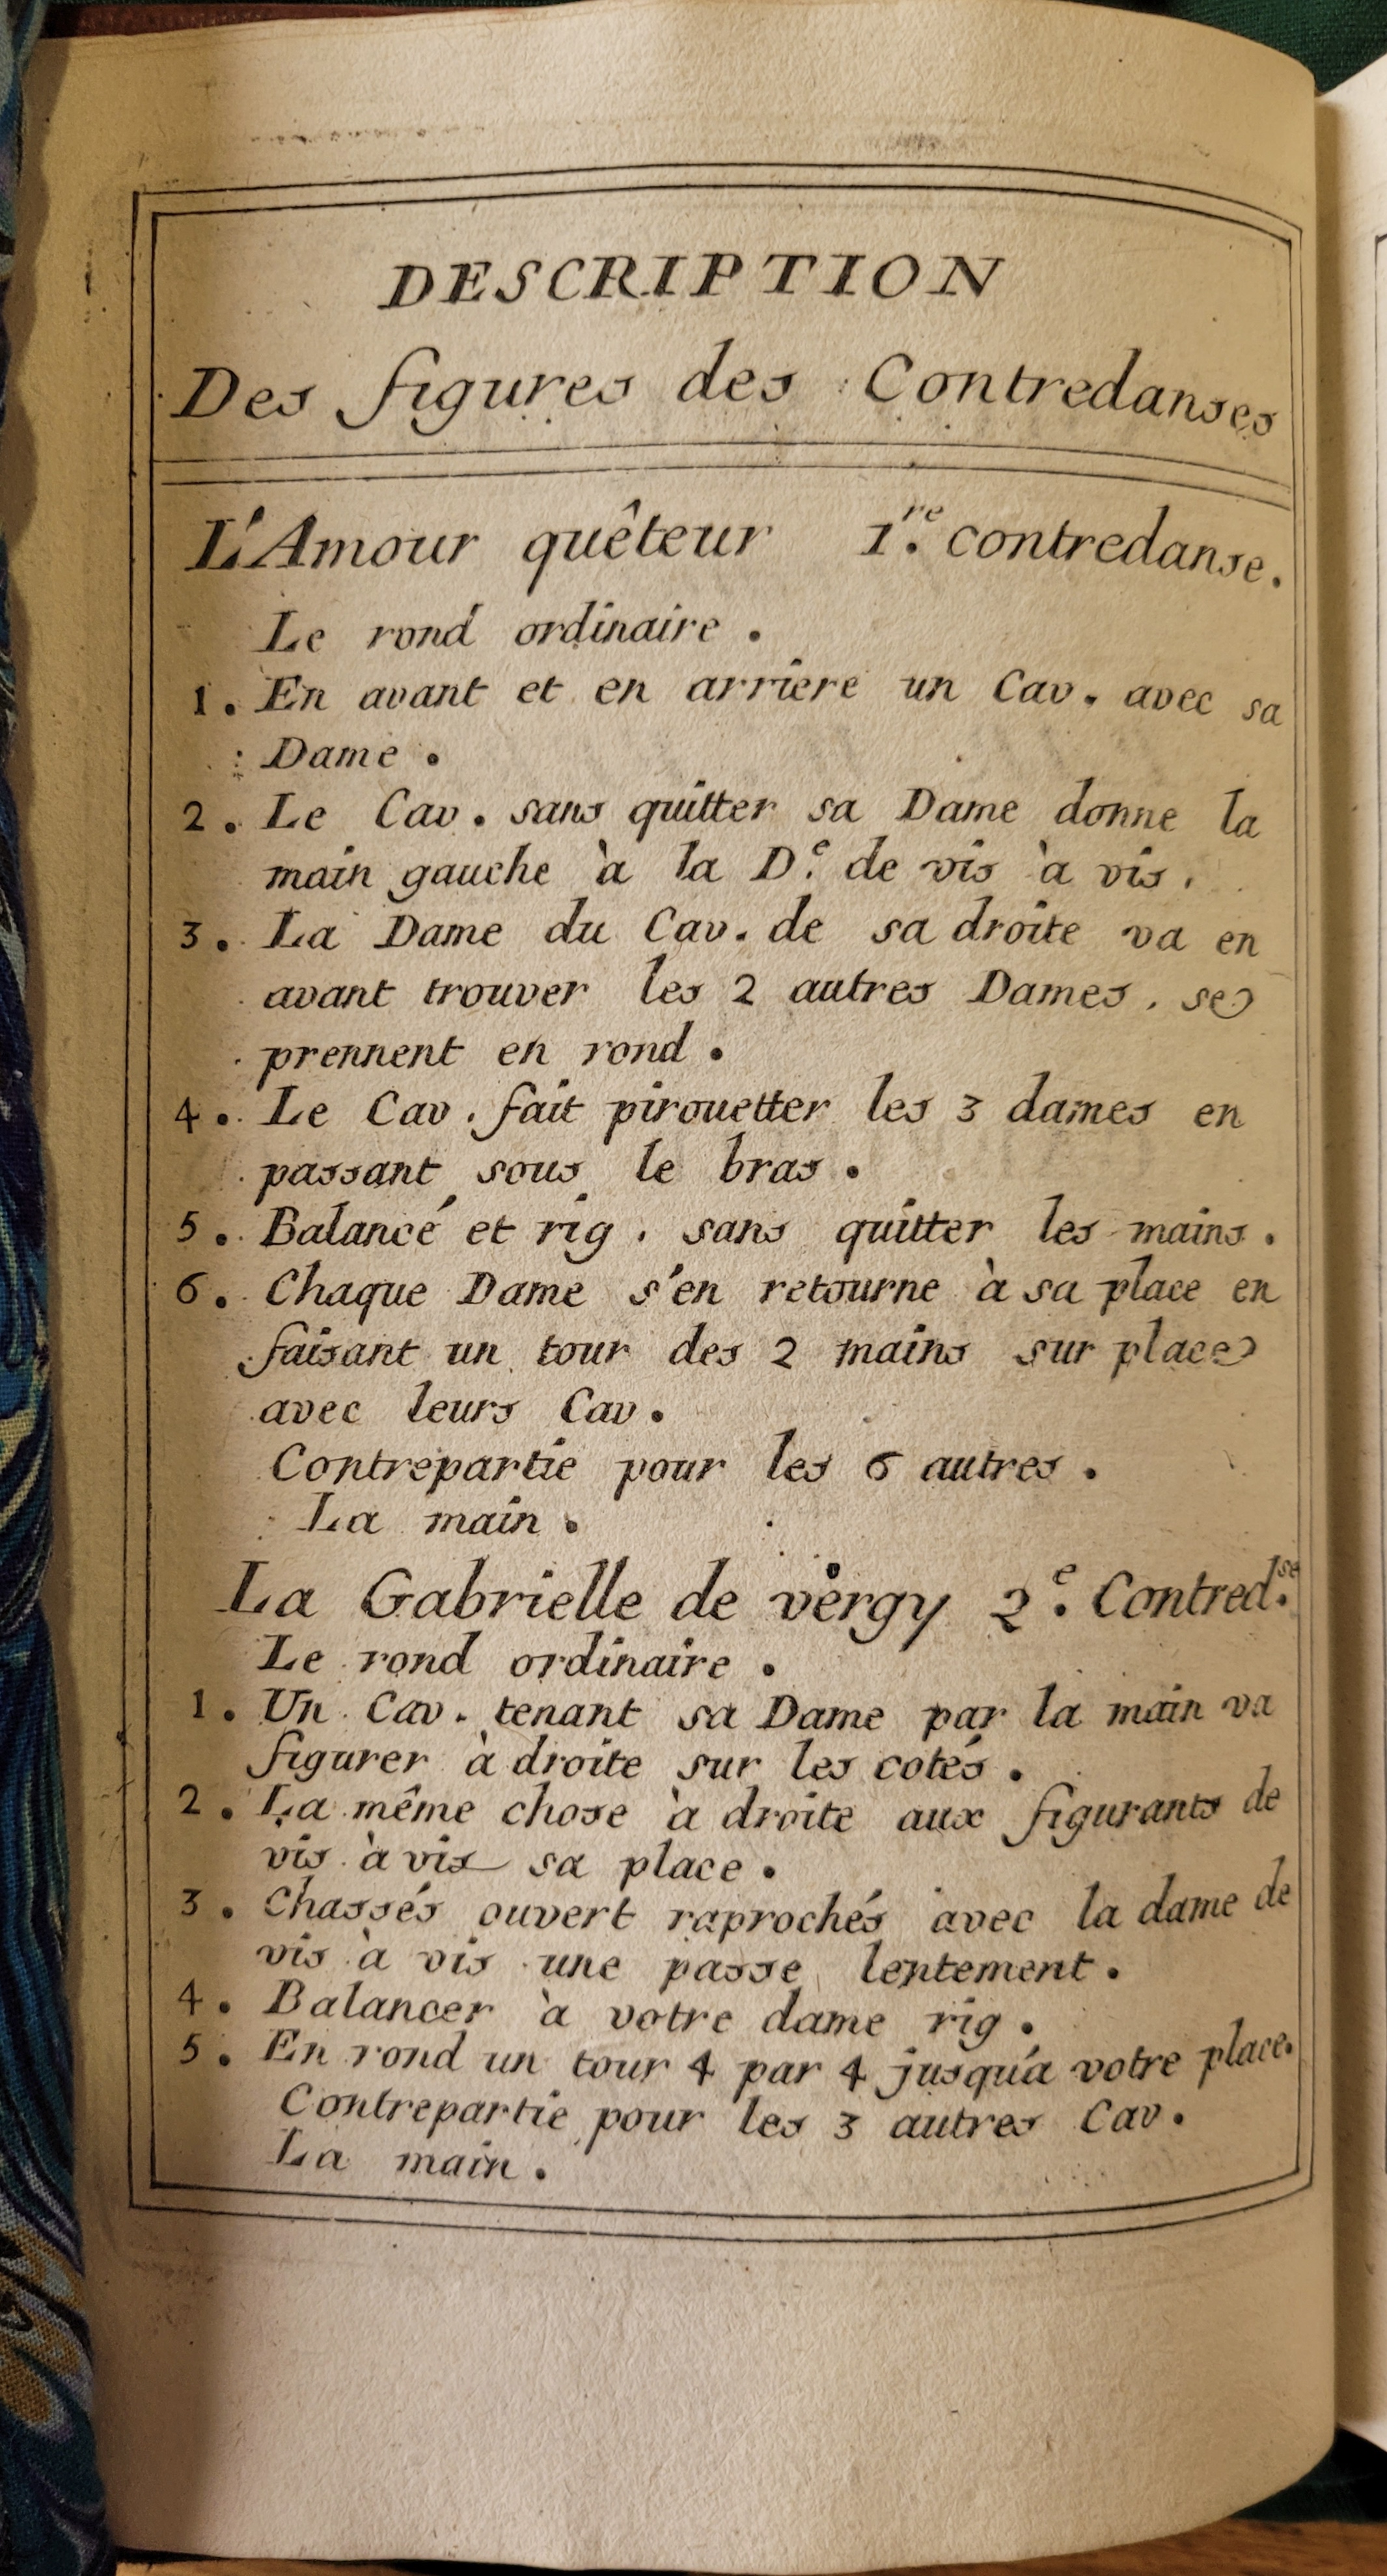 DESCRIPTION
Des figures des Contredanses
L'Amour quêteur 1.re contredanse.
Le rond ordinaire.
1. En avant et en arriere un Cav. avec sa
Dame.
2. Le Cav. sans quitter sa Dame donne la
main gauche à la D.e de vis à vis.
3. La Dame du Cav. de sa droite va en
avant trouver les 2 autres Dames, se
prennent en rond.
4. Le Cav. fait pirouetter les 3 dames en
passant sous le bras.
5. Balancé et rig. sans quitter les mains.
6. Chaque Dame s'en retourne à sa place en
faisant un tour des 2 mains sur place
avec leurs Cav.
Contrepartie pour les 6 autres.
La main.
La Gabrielle de vergy 2.e Contred.se
Le rond ordinaire.
1. Un Cav. tenant sa Dame par la main va
figurer à droite sur les cotés.
2. La même chose à droite aux figurants de
vis à vis sa place.
3. Chassés ouvert raprochés avec la dame de
vis à vis une passe lentement.
4. Balancer à votre dame rig.
5. En rond un tour 4 par 4 jusqu'a votre place.
Contrepartie pour les 3 autres Cav.
La main.